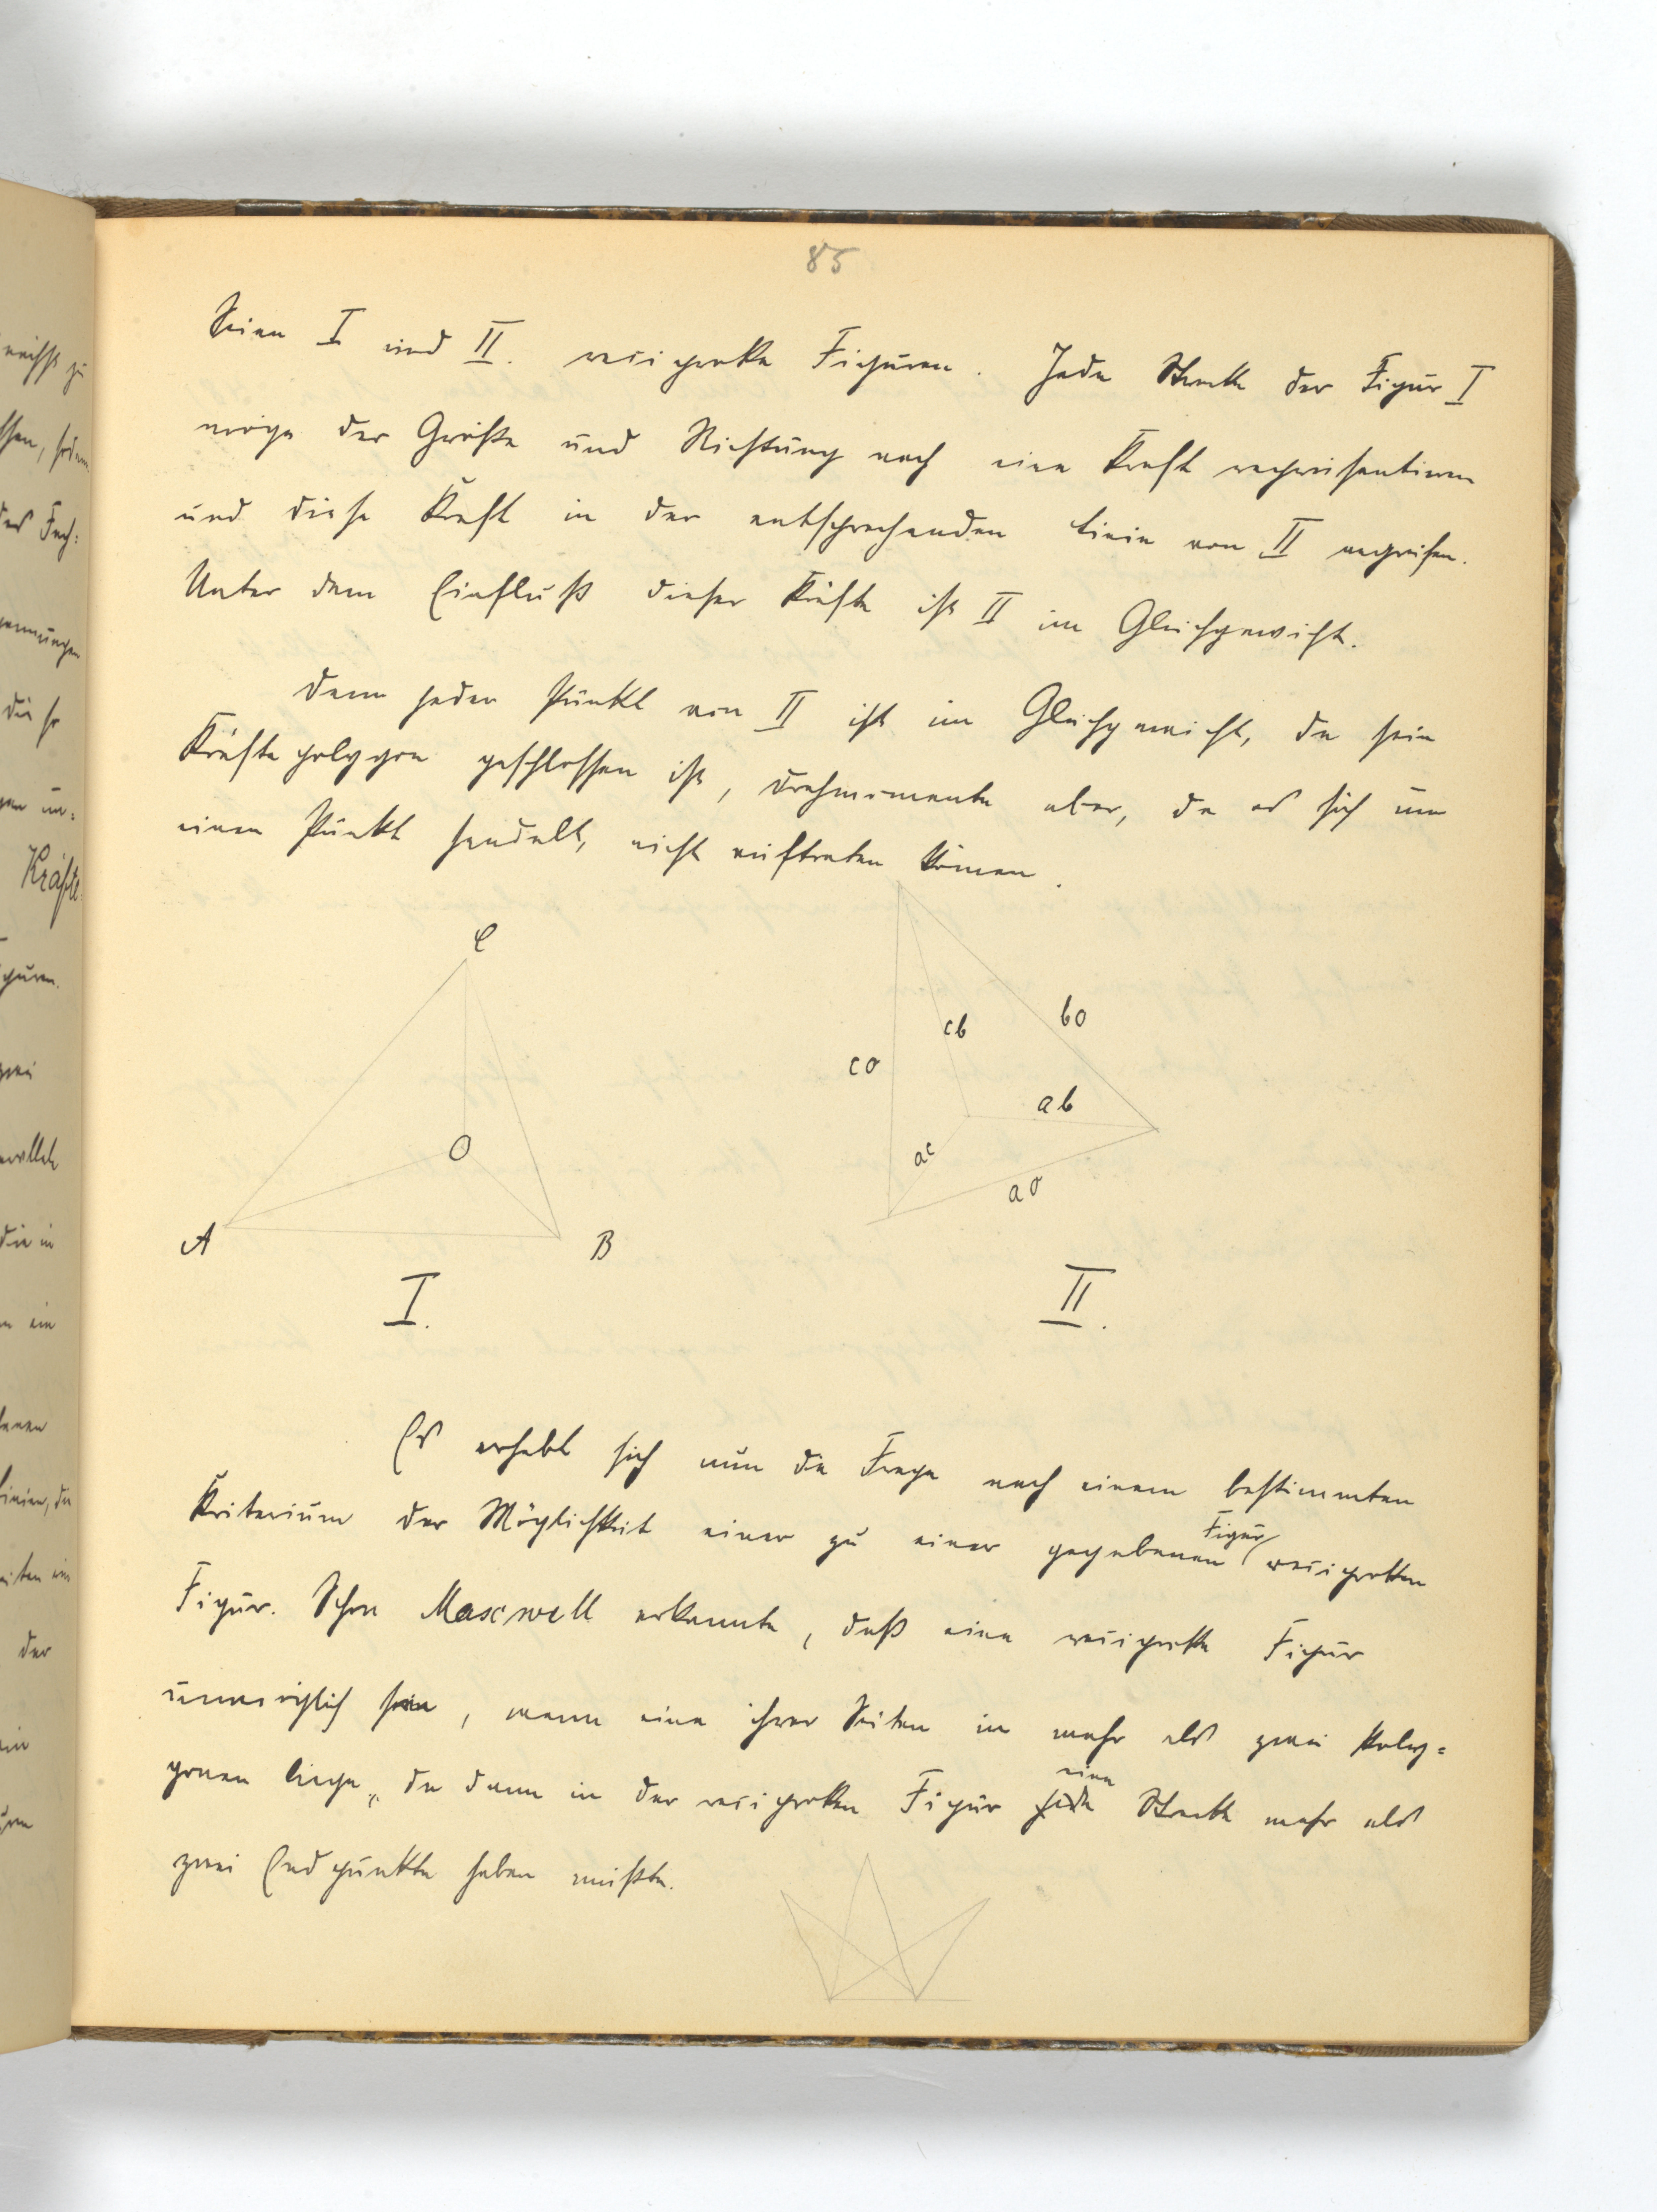 85
Seien I und II. reciproke Figuren. Jede Strecke der Figur I
möge der Größe und Richtung nach eine Kraft repräsentieren
und diese Kraft in der entsprechenden Linie von II angreifen.
Unter dem Einfluß dieser Kräfte ist II im Gleichgewicht.
Denn jeder Punkt von II ist im Gleichgewicht, da sein
Kräftepolygon geschlossen ist, Drehmomente aber, da es sich um
einen Punkt handelt, nicht auftreten können.
C
O
A
B
I.
co
cb
bo
ab
ac
ao
II.
Es erhebt sich nun die Frage nach einem bestimmten
Kriterium der Möglichkeit einer zu einer gegebenen Figur reciproken
Figur. Schon Maxwell erkannte, daß eine reciproke Figur
unmöglich sei, wenn eine ihrer Seiten in mehr als zwei Poly=
gonen liege, da dann in der reciproken Figur eine Strecke mehr als
zwei Endpunkte haben müßte.
Kräfte